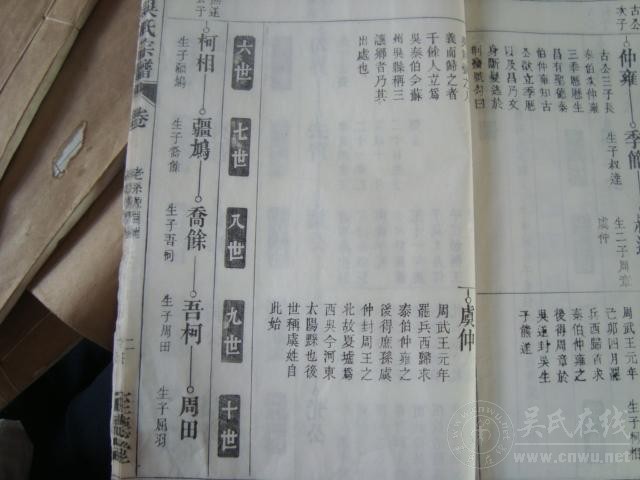 次子
仲雍
古公三子長
泰伯次仲雍
三季歷歷生
昌有聖德泰
伯仲雍知古
公欲立季歷
以及昌乃文
身斷髮逃於
季餘
生子叔達
生二子周章
虞仲
周武王元年
己卯四月罷
兵西歸首求
泰伯仲雍之
後得周章於
吳遂封吳生
子熊遂
生子柯相
義南歸之者
千餘人立爲
吳泰伯今蘇
州吳縣稱三
讓鄉者乃其
出處也
虞仲
周武王元年
罷兵西歸求
泰伯仲雍之
後得庶孫虞
仲封周王之
北故夏墟爲
西吳今河東
太陽縣也後
世稱虞姓自
此始
六世
七世
八世
九世
十世
柯相
生子疆鳩
疆鳩
生子喬餘
喬餘
生子吾柯
吾柯
生子周田
周田
生子屈羽
吳氏宗譜
卷
吴氏在线
www.cnwu.net